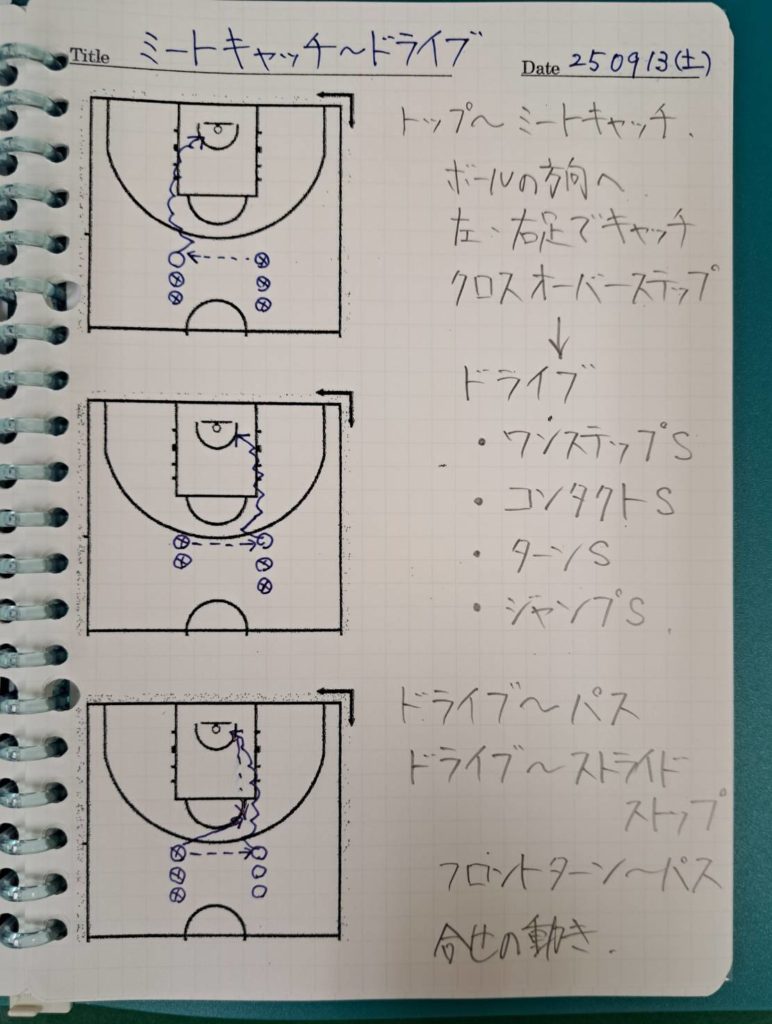 Title ミートキャッチ〜ドライブ
Date 250913(土)
トップ〜ミートキャッチ.
ボールの方向へ
左、右足でキャッチ
クロスオーバーステップ
↓
ドライブ
・ワンステップS
・コンタクトS
・ターンS
・ジャンプS.
ドライブ〜パス
ドライブ〜ストライド
ストップ
フロントターン〜パス
合せの動き.